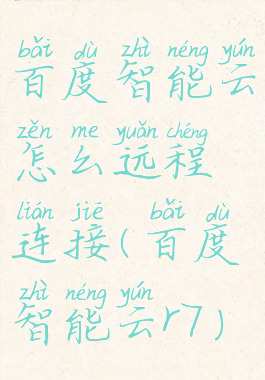 bǎi dù zhì néng yún
百度智能云
zěn me yuǎn chéng
怎么远程
lián jiē bǎi dù
连接(百度
zhì néng yún
智能云r7)